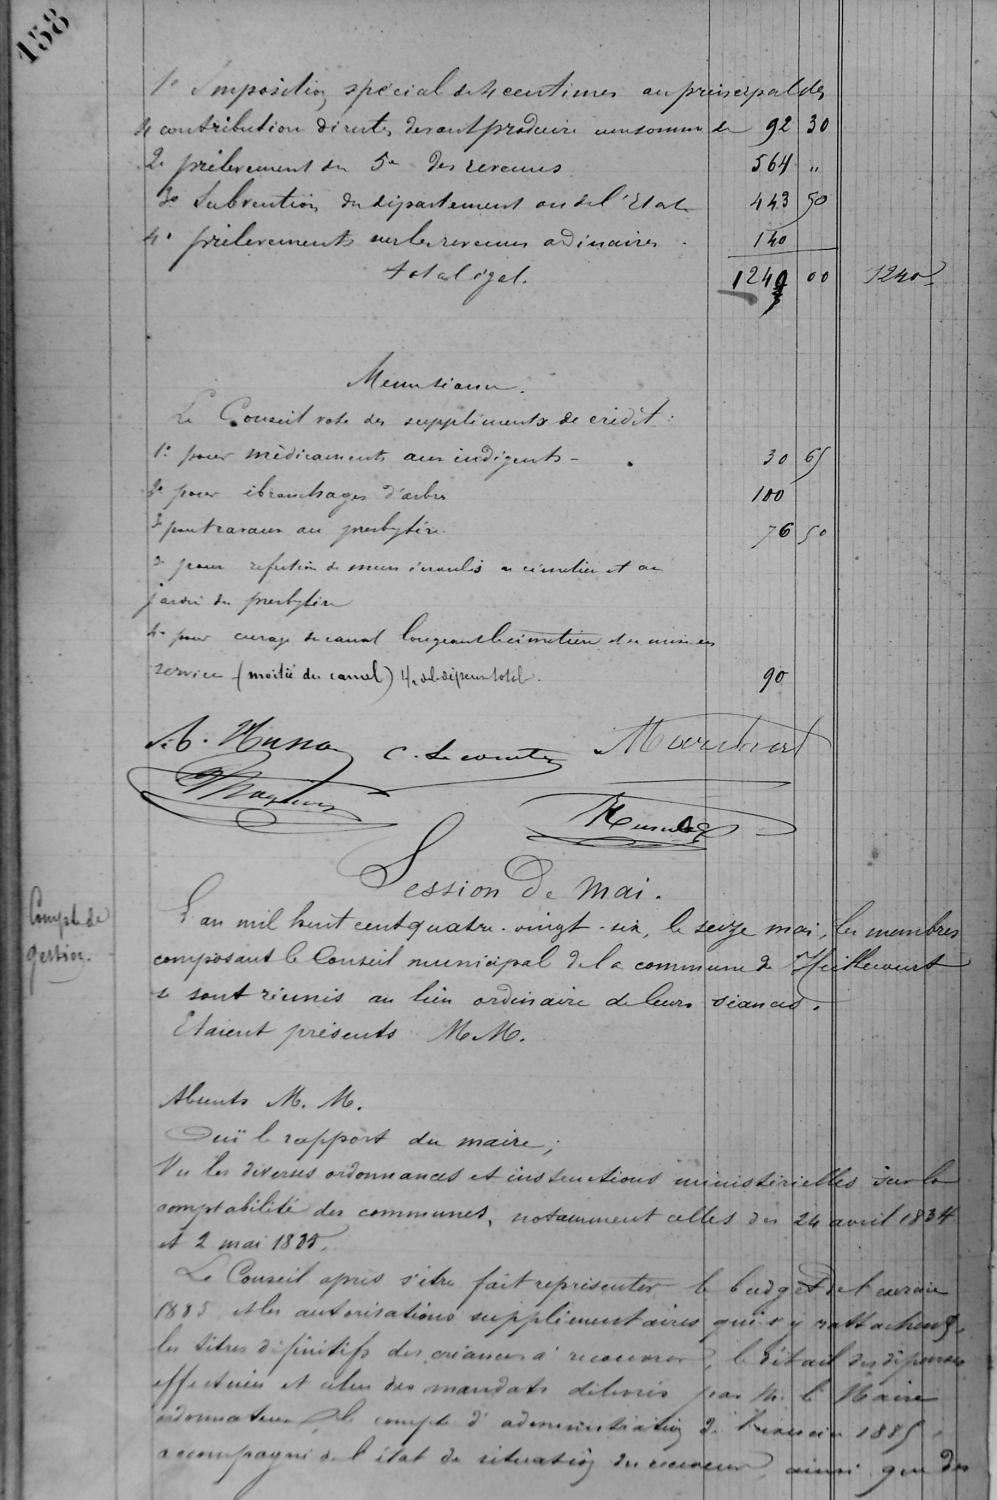 158
1° Imposition spécial de 4 centimes au principal des
4 contribution directes devant produire une somme de 92 30
2° prélèvement du 5e des revenus 564 "
3° Subvention du département ou de l'Etat 443 50
4° prélèvements sur les revenus ordinaires . 140
total égal. 1240 00 1240
Le Conseil vote des suppléments de crédit :
1° pour médicaments aux indigents - 30 65
2° pour ébranchages d'arbres 100
3° pour travaux au presbytère 76 50
3° pour refection de murs écroulés au cimetière et au
jardin du presbytère
4° pour curage du canal longeant le cimetière
service (moitié du canal) 90
C. Lecomte
Session de mai.
Compte de
gestion.
L'an mil huit cent quatre-vingt-six, le seize mai, les membres
composant le Conseil municipal de la commune de Heillecourt
se sont réunis au lieu ordinaire de leurs séances.
Etaient présents M.M.
Absents M. M.
Ouï le rapport du maire ;
Vu les diverses ordonnances et instructions ministérielles sur la
comptabilité des communes, notamment celles des 24 avril 1834
et 2 mai
Le Conseil après s'être fait représenter le budget de l'exercice
1885 et les autorisations supplémentaires qui s'y rattachent,
les titres définitifs des créances à recouvrer, le détail des dépenses
effectuées et celui des mandats délivrés par M. le Maire
ordonnateur, le compte d'administration de l'exercice 1885,
accompagné de l'état de situation du receveur, ainsi que des